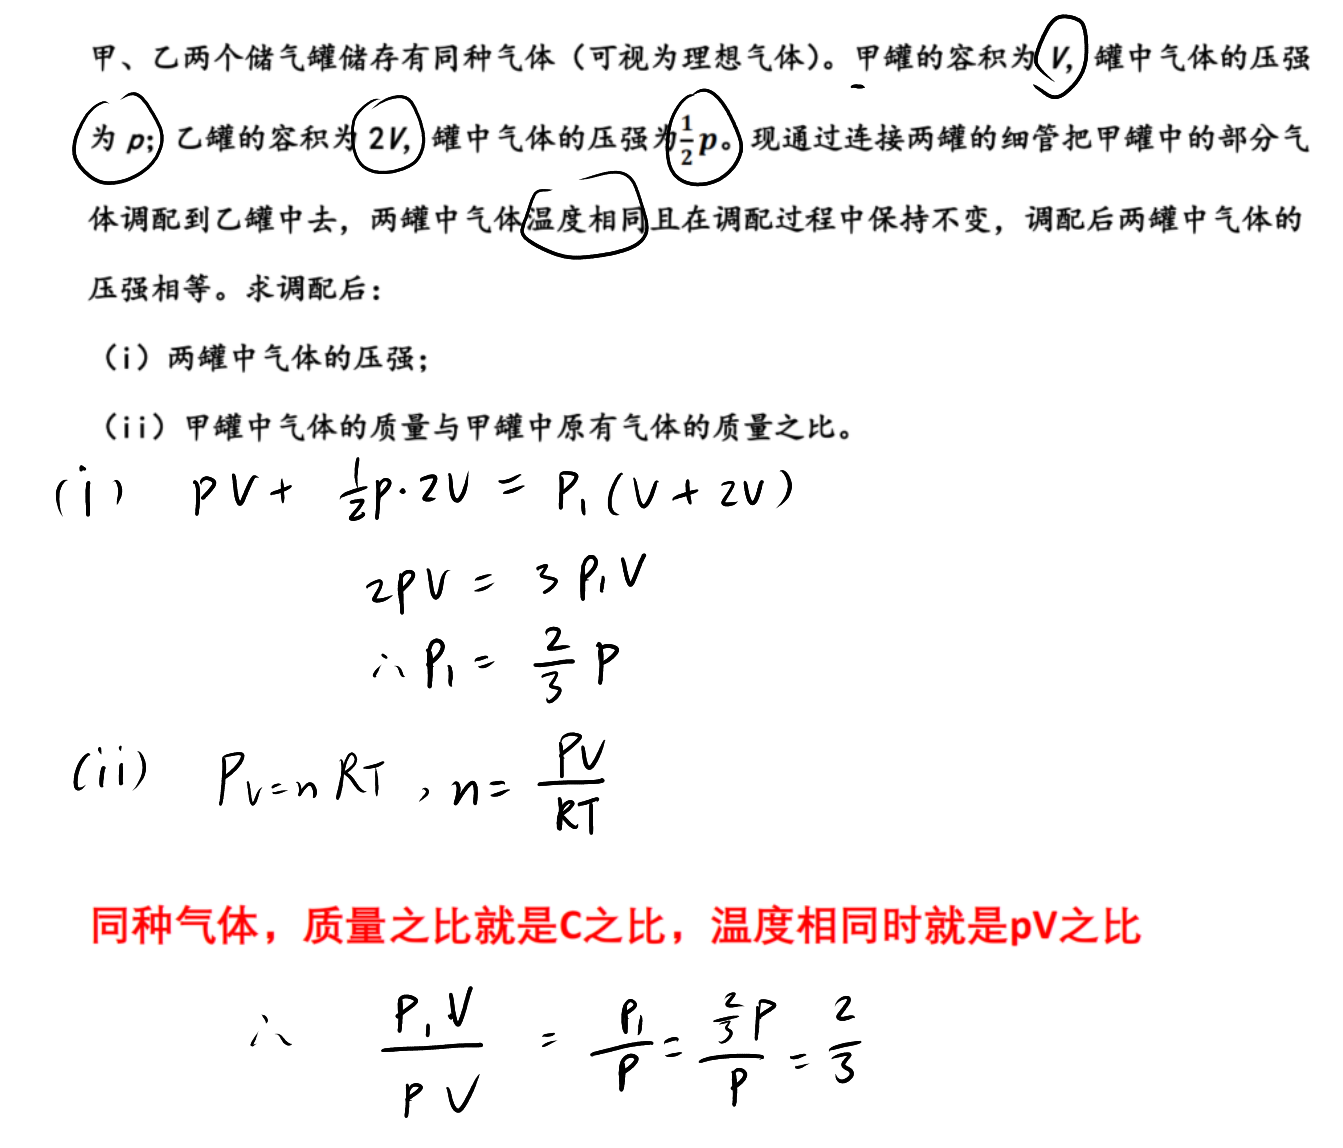 甲、乙两个储气罐储存有同种气体（可视为理想气体）。甲罐的容积为 V, 罐中气体的压强
为 p; 乙罐的容积为 2V, 罐中气体的压强为 1/2 p。现通过连接两罐的细管把甲罐中的部分气
体调配到乙罐中去，两罐中气体温度相同且在调配过程中保持不变，调配后两罐中气体的
压强相等。求调配后：
（i）两罐中气体的压强；
（ii）甲罐中气体的质量与甲罐中原有气体的质量之比。
(i) pV + 1/2 p·2V = P₁(V + 2V)
2pV = 3P₁V
∴ P₁ = 2/3 P
(ii) PV=nRT, n= PV/RT
同种气体，质量之比就是C之比，温度相同时就是pV之比
∴ P₁V/PV = P₁/P = 2/3 P/P = 2/3